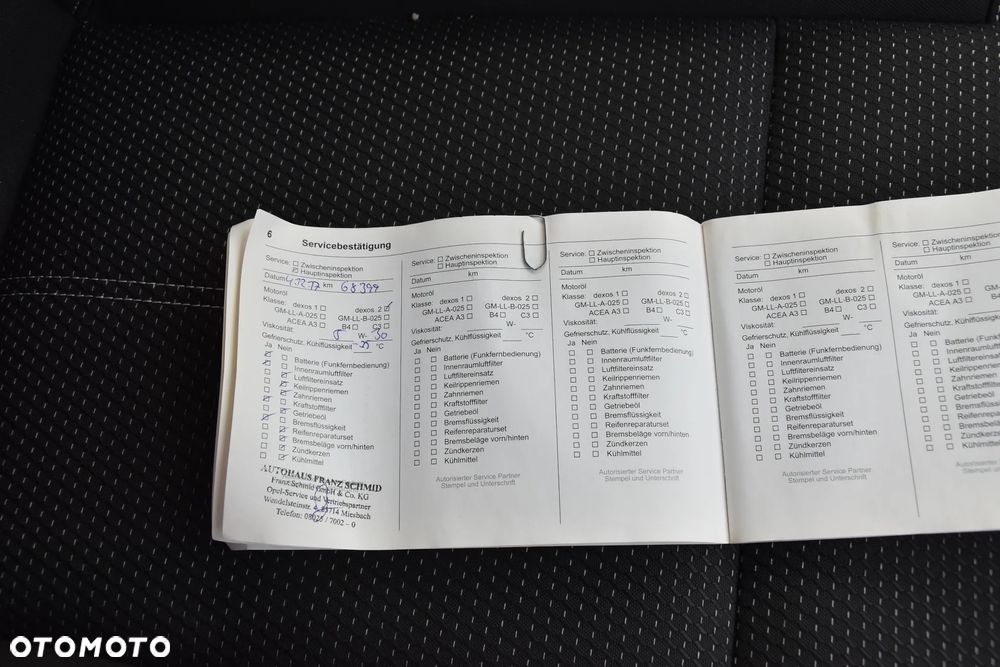 6 Servicebestätigung
Service: □ Zwischeninspektion
□ Hauptinspektion
Datum 4.12.17 km 68399
Motoröl
Klasse: dexos 1 □ dexos 2 ☑
GM-LL-A-025 □ GM-LL-B-025 □
ACEA A3 □ B4 □ C3 □
Viskosität: 5 W- 30
Gefrierschutz, Kühlflüssigkeit -35 °C
Ja Nein
Batterie (Funkfernbedienung)
Innenraumluftfilter
Luftfiltereinsatz
Keilrippenriemen
Zahnriemen
Kraftstofffilter
Getriebeöl
Bremsflüssigkeit
Reifenreparaturset
Bremsbeläge vorn/hinten
Zündkerzen
Kühlmittel
AUTOHAUS FRANZ SCHMID
Franz Schmid GmbH & Co. KG
Opel-Service und Vertriebspartner
Wendelsteinstr. 83714 Miesbach
Telefon: 08025 / 7002 – 0
Service: □ Zwischeninspektion
□ Hauptinspektion
Datum km
Motoröl
Klasse: dexos 1 □ dexos 2 □
GM-LL-A-025 □ GM-LL-B-025 □
ACEA A3 □ B4 □ C3 □
Viskosität: W-
Gefrierschutz, Kühlflüssigkeit °C
Ja Nein
□ □ Batterie (Funkfernbedienung)
□ □ Innenraumluftfilter
□ □ Luftfiltereinsatz
□ □ Keilrippenriemen
□ □ Zahnriemen
□ □ Kraftstofffilter
□ □ Getriebeöl
□ □ Bremsflüssigkeit
□ □ Reifenreparaturset
□ □ Bremsbeläge vorn/hinten
□ □ Zündkerzen
□ □ Kühlmittel
Autorisierter Service Partner
Stempel und Unterschrift
Service: □ Zwischeninspektion
□ Hauptinspektion
Datum km
Motoröl
Klasse: dexos 1 □ dexos 2 □
GM-LL-A-025 □ GM-LL-B-025 □
ACEA A3 □ B4 □ C3 □
Viskosität: W-
Gefrierschutz, Kühlflüssigkeit °C
Ja Nein
□ □ Batterie (Funkfernbedienung)
□ □ Innenraumluftfilter
□ □ Luftfiltereinsatz
□ □ Keilrippenriemen
□ □ Zahnriemen
□ □ Kraftstofffilter
□ □ Getriebeöl
□ □ Bremsflüssigkeit
□ □ Reifenreparaturset
□ □ Bremsbeläge vorn/hinten
□ □ Zündkerzen
□ □ Kühlmittel
Autorisierter Service Partner
Stempel und Unterschrift
Service: □ Zwischeninspektion
□ Hauptinspektion
Datum km
Motoröl
Klasse: dexos 1 □ dexos 2 □
GM-LL-A-025 □ GM-LL-B-025 □
ACEA A3 □ B4 □ C3 □
Viskosität: W-
Gefrierschutz, Kühlflüssigkeit °C
Ja Nein
□ □ Batterie (Funkfernbedienung)
□ □ Innenraumluftfilter
□ □ Luftfiltereinsatz
□ □ Keilrippenriemen
□ □ Zahnriemen
□ □ Kraftstofffilter
□ □ Getriebeöl
□ □ Bremsflüssigkeit
□ □ Reifenreparaturset
□ □ Bremsbeläge vorn/hinten
□ □ Zündkerzen
□ □ Kühlmittel
Autorisierter Service Partner
Stempel und Unterschrift
Service: □ Zwischeninspektion
□ Hauptinspektion
Datum km
Motoröl
Klasse: dexos 1 □
GM-LL-A-025 □
ACEA A3 □
Viskosität:
Gefrierschutz, Kühlflüssigkeit
Ja Nein
□ □ Batterie
□ □ Innenraumluftfilter
□ □ Luftfiltereinsatz
□ □ Keilrippenriemen
□ □ Zahnriemen
□ □ Kraftstofffilter
□ □ Getriebeöl
□ □ Bremsflüssigkeit
□ □ Reifenreparaturset
□ □ Bremsbeläge
□ □ Zündkerzen
□ □ Kühlmittel
Autorisierter
OTOMOTO